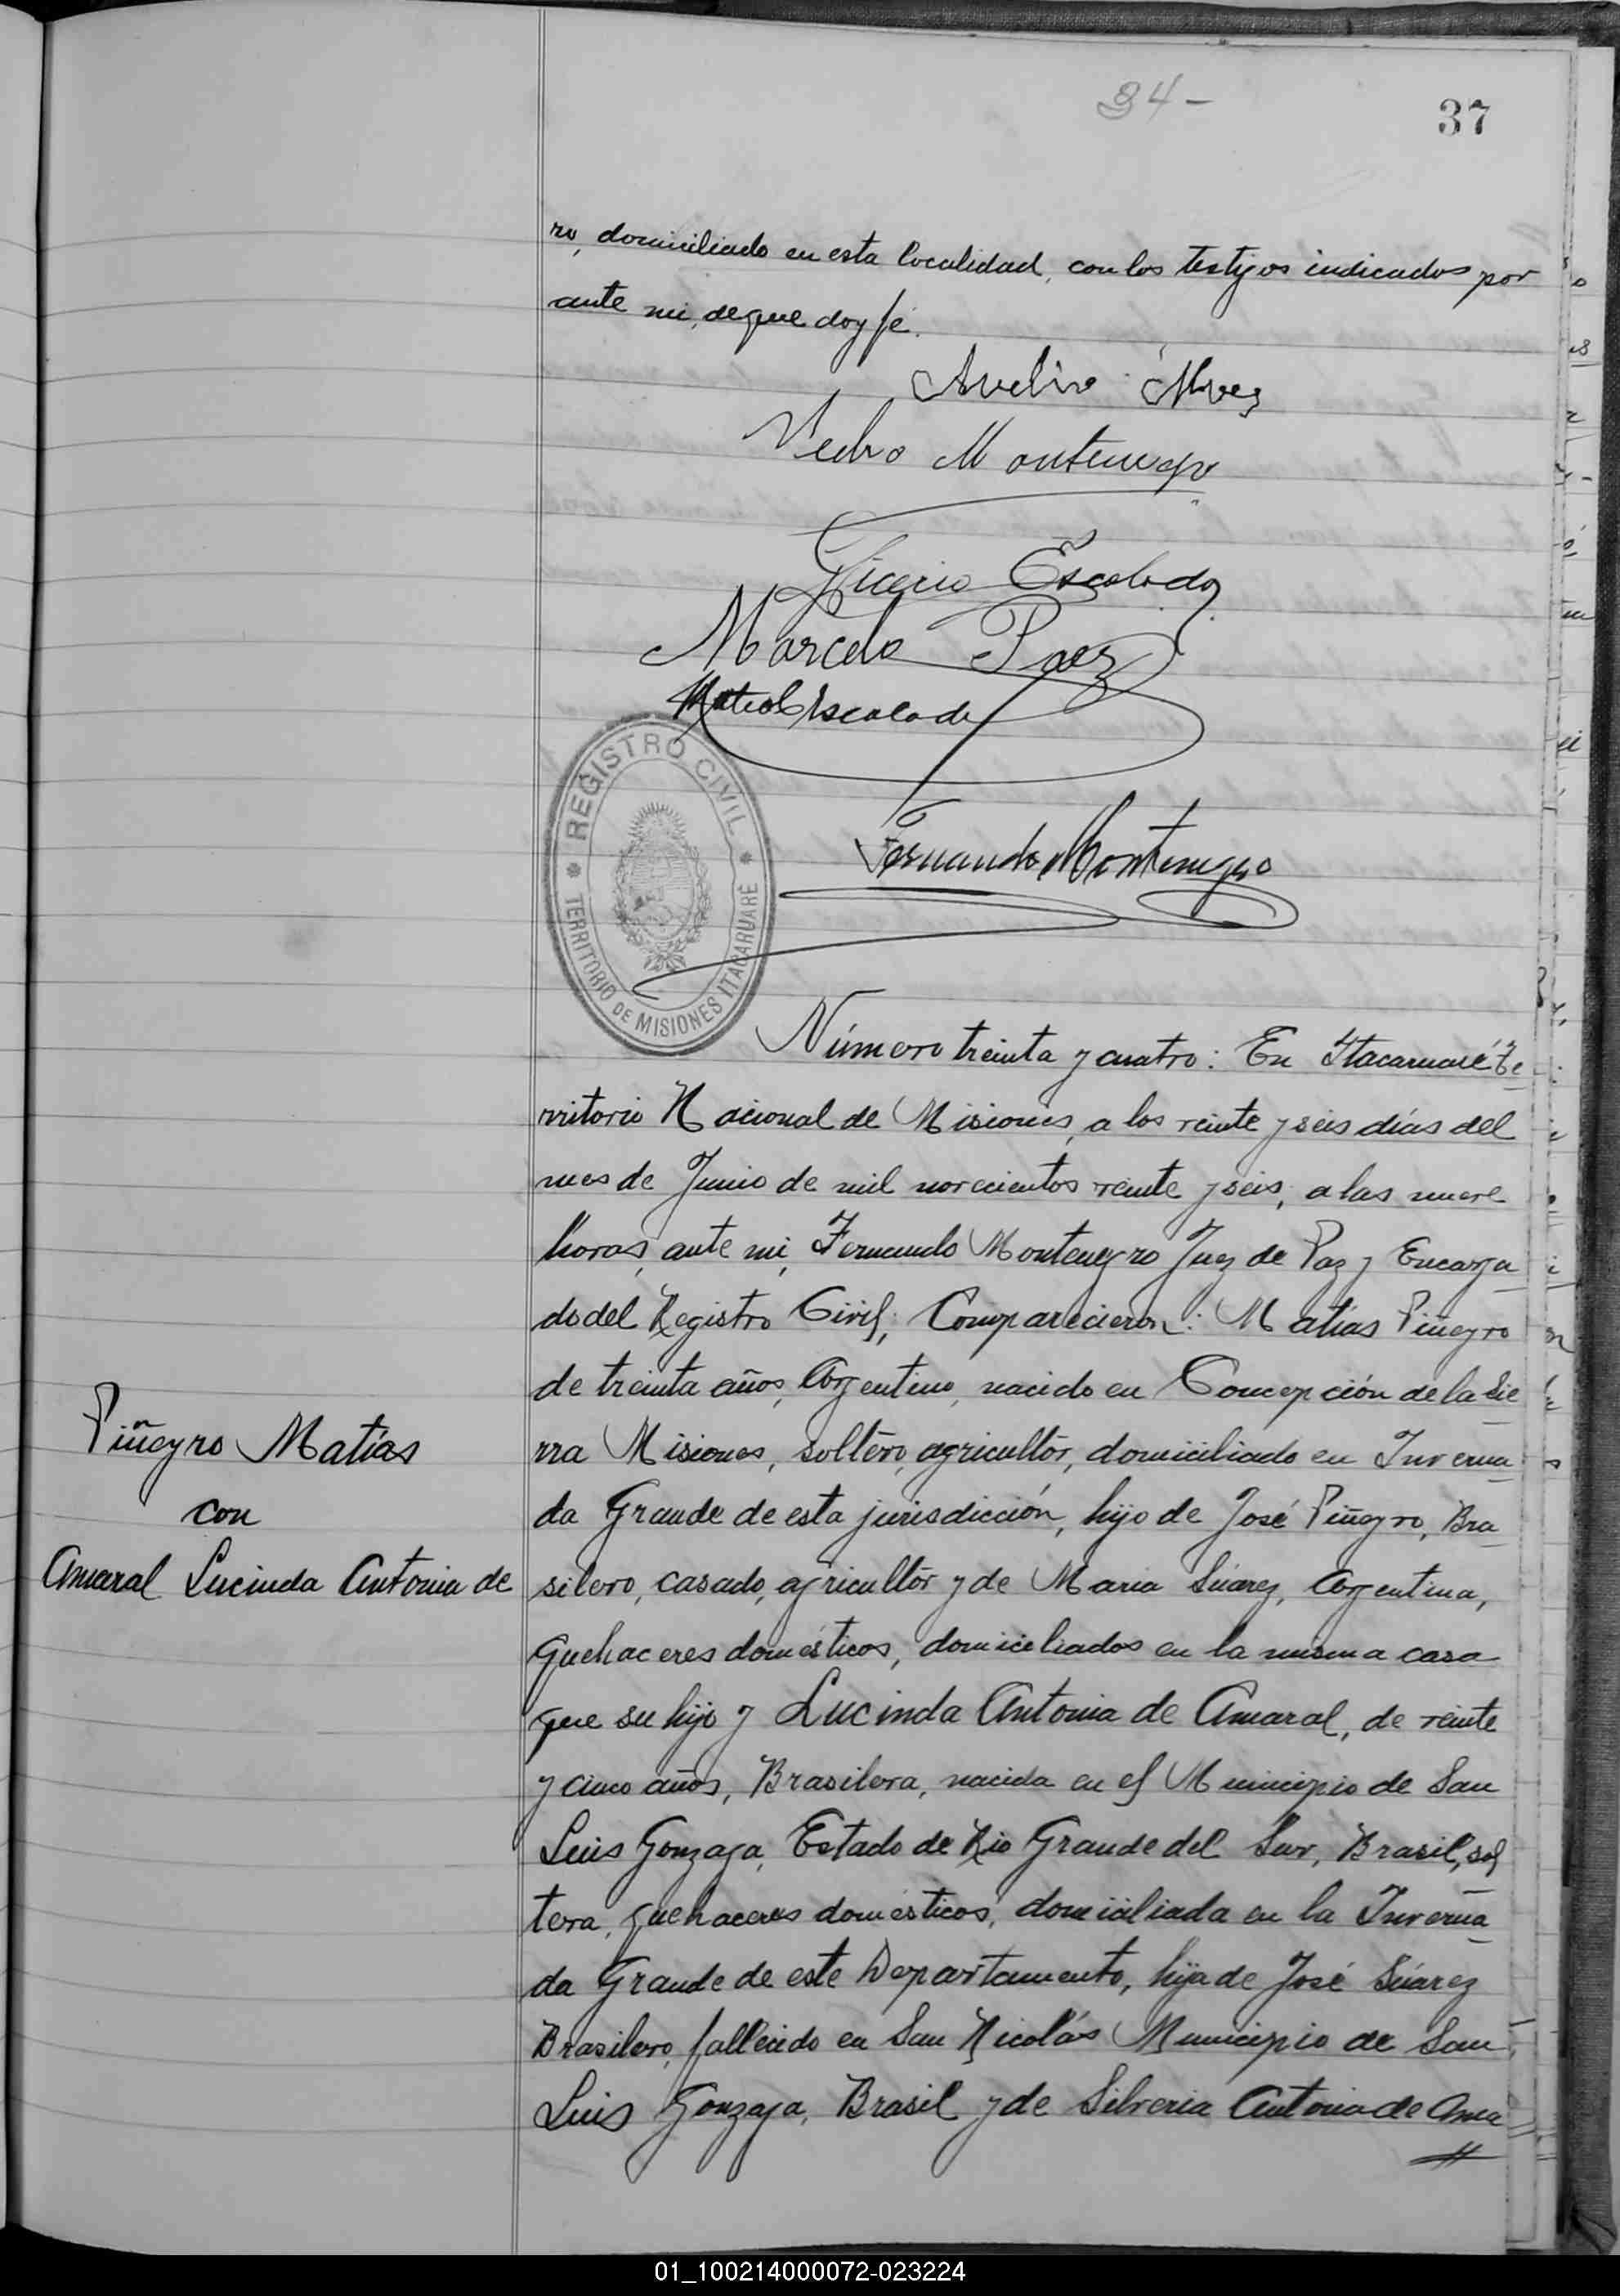 34-
37
ro, domiciliado en esta localidad, con los testigos indicados por
ante mi, de que doy fé.
Avelino Alves
Pedro Montenegro
Glicerio Escalada
Marcelo Paez
Mateo Escalada
REGISTRO CIVIL
TERRITORIO DE MISIONES ITACARUARÉ
Fernando Montenegro
Número treinta y cuatro: En Itacaruaré Te
rritorio Nacional de Misiones, a los veinte y seis días del
mes de Junio de mil novecientos veinte y seis, a las nueve
horas, ante mi, Fernando Montenegro Juez de Paz y Encarga
do del Registro Civil; Comparecieron: Matías Piñeyro
de treinta años, Argentino, nacido en Concepción de la Sie
rra Misiones, soltero, agricultor, domiciliado en Inverna
Piñeyro Matías
con
Amaral Lucinda Antonia de
da Grande de esta jurisdicción, hijo de José Piñeyro, Bra
silero, casado, agricultor y de Maria Súarez, Argentina,
quehaceres domésticos, domiciliados en la misma casa
que su hijo y Lucinda Antonia de Amaral, de veinte
y cinco años, Brasilera, nacida en el Municipio de San
Luis Gonzaga, Estado de Rio Grande del Sur, Brasil, sol
tera, quehaceres domésticos, domiciliada en la Inverna
da Grande de este Departamento, hija de José Súarez
Brasilero, fallecido en San Nicolás Municipio de San
Luis Gonzaga, Brasil y de Silveria Antonia de Ama
01_100214000072-023224